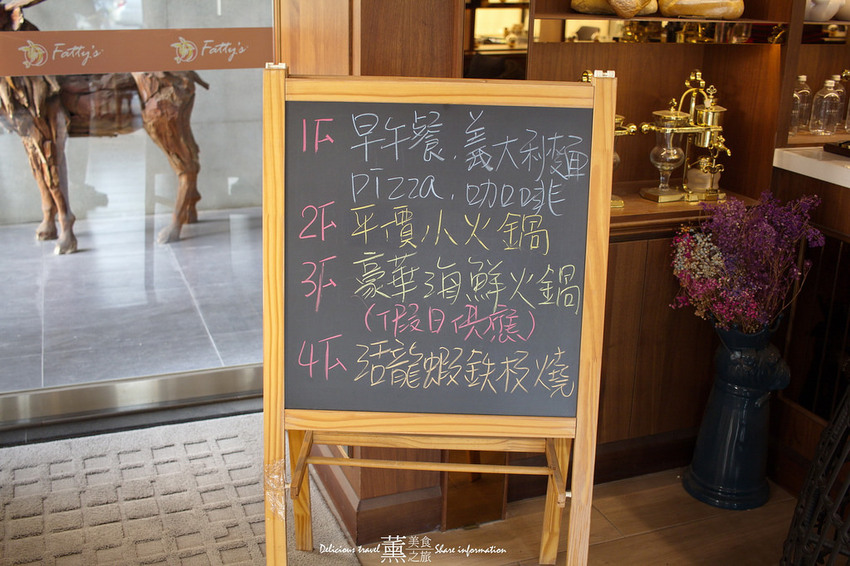 Fatty's Fatty's
1F 早午餐.義大利麵
pizza.咖啡
2F 平價小火鍋
3F 豪華海鮮火鍋
(假日供應)
4F 活龍蝦鉄板燒
Delicious travel 薰 美食之旅 Share information